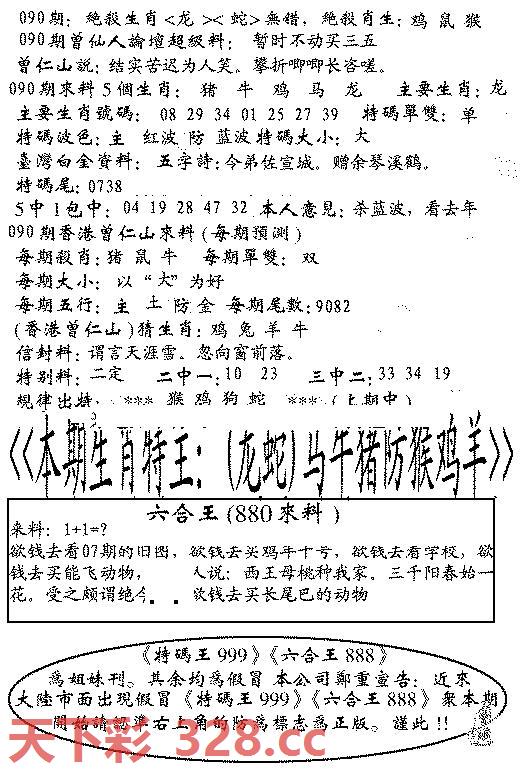 090期: 絶殺生肖<龙 ><蛇>無錯, 絶殺肖生: 鸡 鼠 猴
090期曾仙人論壇超級料: 暂时不动买三五
曾仁山說: 结实苦迟为人笑。攀折唧唧长咨嗟。
090期來料5個生肖: 猪 牛 鸡 马 龙 主要生肖: 龙
主要生肖號碼: 08 29 34 01 25 27 39 特碼單雙: 单
特碼波色: 主 红波 防 蓝波 特碼大小: 大
臺灣白金資料: 五字詩: 令弟佐宣城。赠余琴溪鹤。
特碼尾: 0738
5中1包中: 04 19 28 47 32 本人意見: 杀蓝波, 看去年
090期香港曾仁山來料(每期預測)
每期殺肖: 猪 鼠 牛 每期單雙: 双
每期大小: 以 “大” 为好
每期五行: 主 土 防 金 每期尾數: 9082
(香港曾仁山)猜生肖: 鸡 兔 羊 牛
信封料: 谓言天涯雪。忽向窗前落。
特别料: 二定 二中一: 10 23 三中二: 33 34 19
規律出特: *** 猴 鸡 狗 蛇 *** (上期中)
《本期生肖特王: (龙蛇)马牛猪防猴鸡羊》
六合王(880來料)
来料: 1+1=?
欲钱去看07期的旧图, 欲钱去买鸡年十号, 欲钱去看学校, 欲
钱去买能飞动物, 人说: 西王母桃种我家。三千阳春始一
花。受之颇谓绝今。 欲钱去买长尾巴的动物
《特碼王999》《六合王888》
為姐妹刊。其余均為假冒 本公司鄭重宣告: 近來
大陸市面出現假冒《特碼王999》《六合王888》衆本期
開始請認準右上角的防為標志為正版。謹此!!
天下彩 328.cc